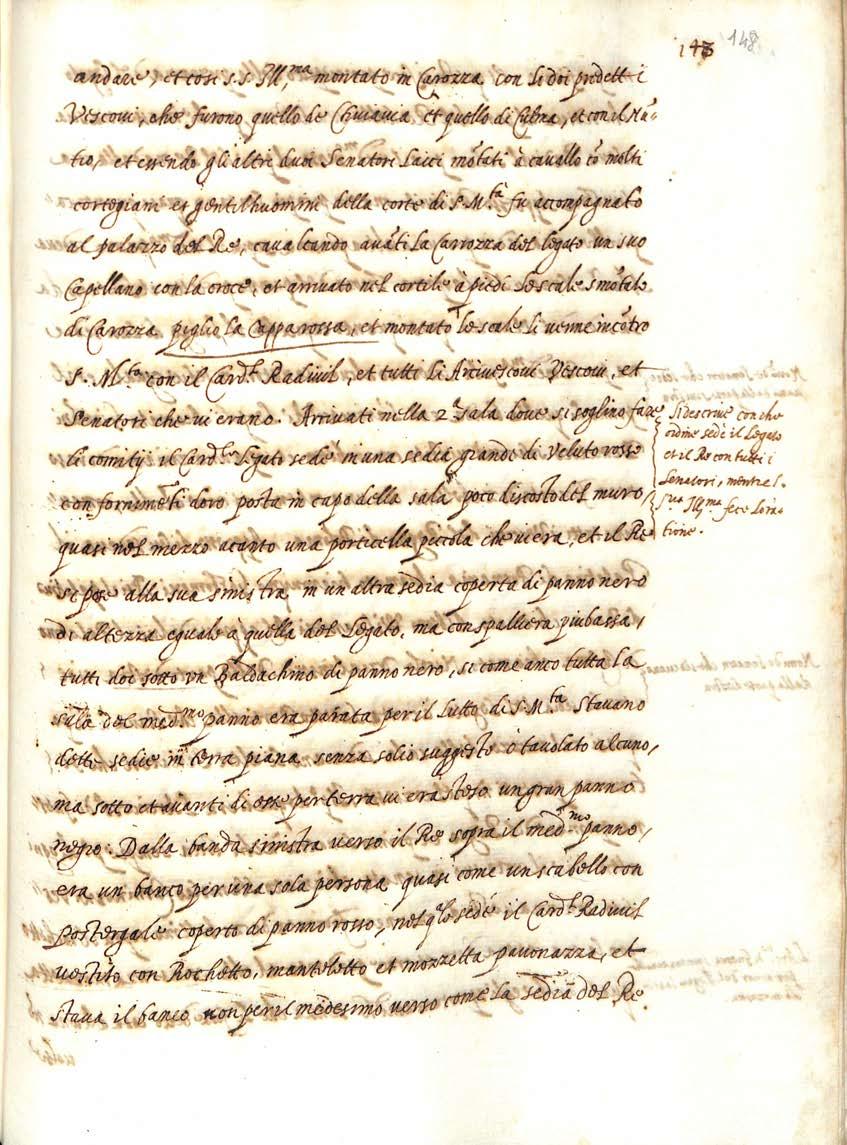 148
143
andare, et cosi s.s. Ill.ma montato in Carozza con li doi predetti
Vescovi, che furono quello de Chuiavia et quello di Culma, et con il Nũ=
tio, et essendo gli altri duoi Senatori Laici mõtati à cavallo cõ molti
cortegiani et gentilhuomini della corte di S. M.tà fu accompagnato
al palazzo del Re, cavalcando avãti la Carrozza del legato un suo
Capellano con la croce, et arrivato nel cortile à piedi le scale smõtato
di Carozza pigliò la Cappa rossa, et montato le scale li venne incõtro
S. M.tà con il Card.l Radivil, et tutti li Arcivescovi Vescovi, et
Senatori che vi erano. Arrivati nella 2.a sala dove si soglino fare
li comitij il Card.le Legato sedè in una sedia grande di Veluto rosso
con fornimẽti d'oro posta in capo della sala poco discosto del muro,
quasi nel mezzo acanto una porticella piccola che vi era, et il Re
si pose alla sua sinistra in un altra sedia coperta di panno nero
di altezza eguale à quella del Legato, ma con spalliera più bassa,
tutti doi sotto un Baldachino di panno nero, si come anco tutta la
sala del med.mo panno era parata per il lutto di S. M.tà Stavano
dette sedie in terra piana senza solio suggesto ò tavolato alcuno,
ma sotto et avanti di esse per terra vi era steso un gran panno
negro. Dalla banda sinistra verso il Re sopra il med.mo panno,
era un banco per una sola persona quasi come un scabello con
postergale coperto di panno rosso, nel q.le sedè il Card.l Radivil
vestito con Rochetto, manteletto et mozzetta pavonazza, et
stava il banco non per il medesimo verso come la sedia del Re.
Si descrive con che
ordine sedè il Legato
et il Re con tutti i
Senatori, mentre
sua Ill.ma fece l'ora=
tione.